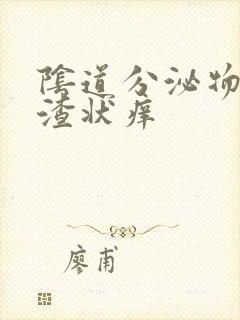 陰道分泌物
渣状痒
廖甫